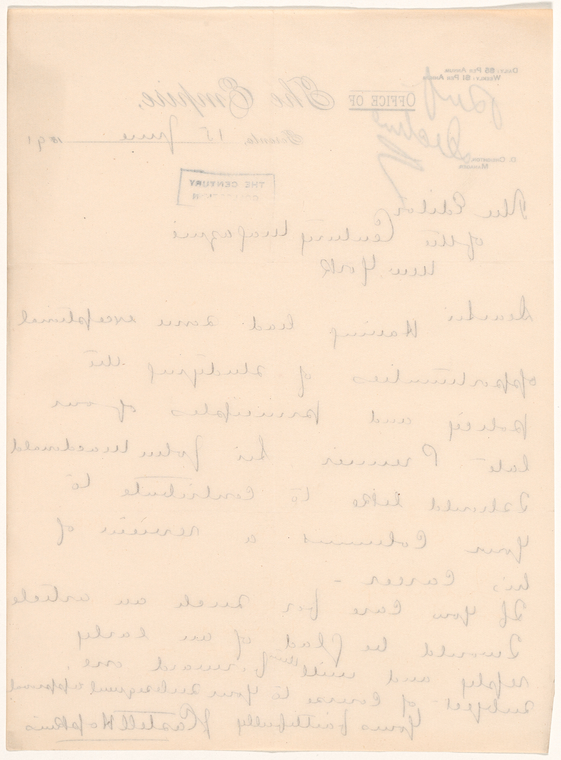 DAILY: $5 PER ANNUM
WEEKLY: $1 PER ANNUM
OFFICE OF The Empire,
D. CREIGHTON,
MANAGER
Toronto 15 June 1891
THE CENTURY
The Editor
of the Century Magazine
New York
Dear Sir
Having had some exceptional
opportunities of studying the
policy and principles of our
late Premier Sir John Macdonald
I should like to contribute to
your Columns a review of
his career -
If you care for such an article
I would be glad of an early
reply and will forward one,
subject of course to your subsequent approval
Yours faithfully J Castell Hopkins